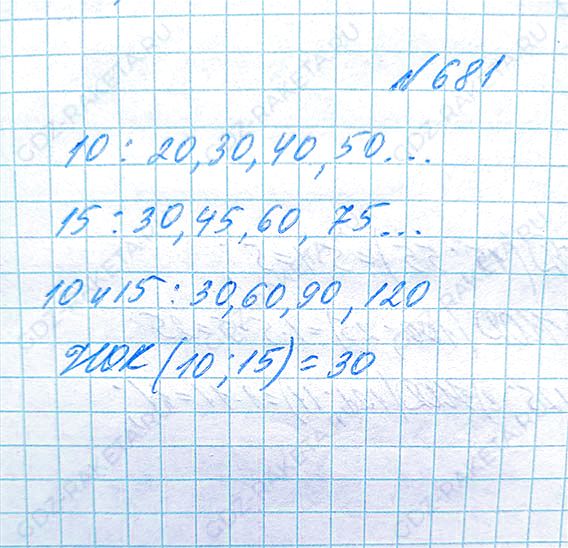 №681
10: 20, 30, 40, 50...
15: 30, 45, 60, 75...
10 и 15: 30, 60, 90, 120
НОК (10; 15) = 30
GDZ-RAKETA.RU